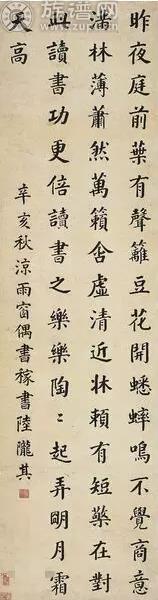 族谱网
昨夜庭前葉有聲籬豆花開蟋蟀鳴不覺商意
滿林薄蕭然萬籟含虛清近牀賴有短檠在對
此讀書功更倍讀書之樂樂陶〻起弄明月霜
天高
辛亥秋涼雨窗偶書稼書陸隴其